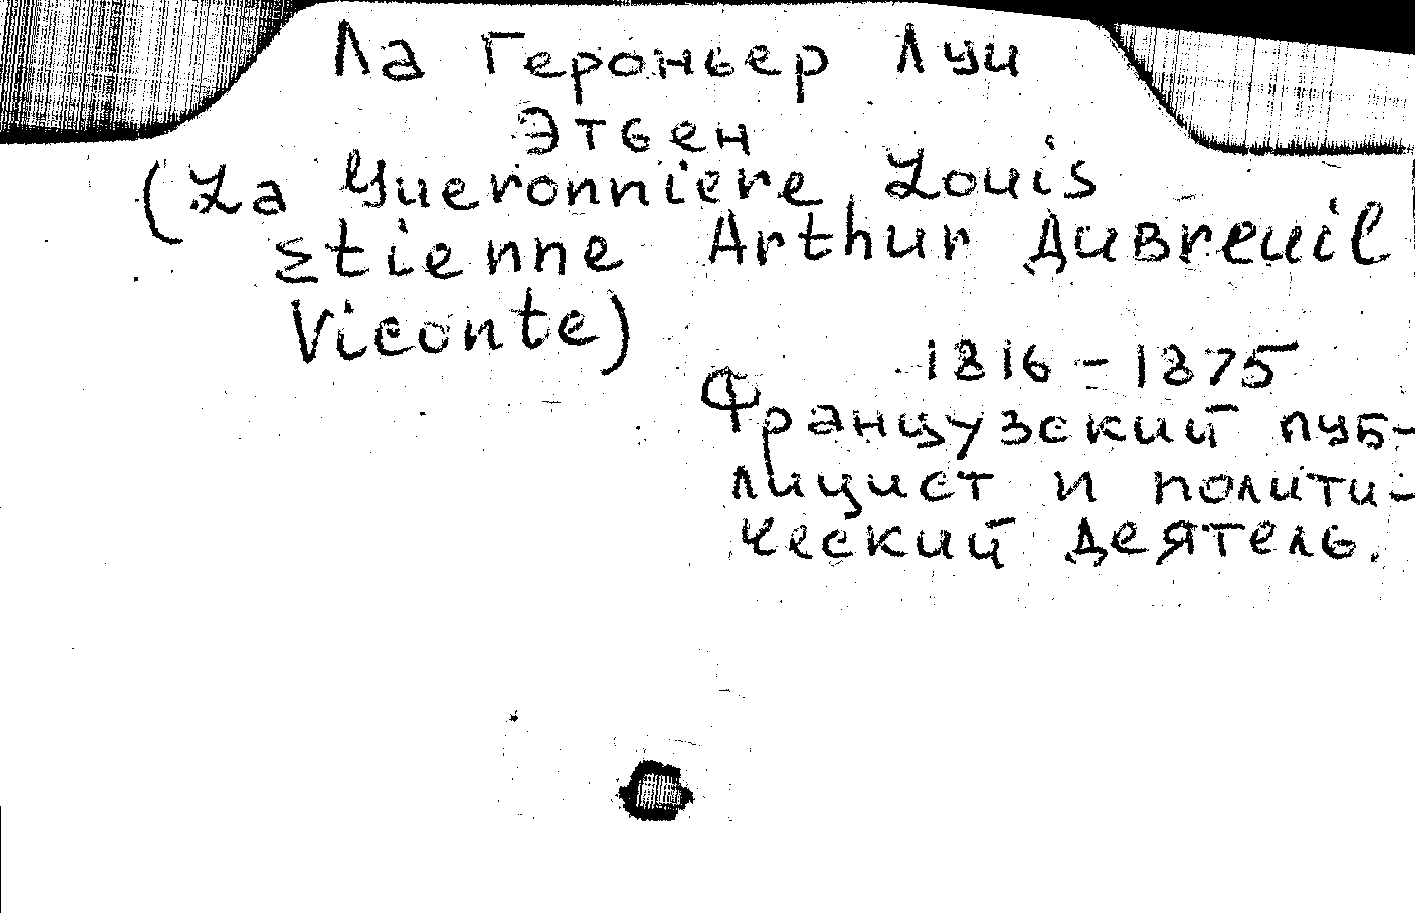 Ла Героньер Луи
Этьен
(La Gueronniere Louis
Etienne Arthur Дивreuil
Viconte)
1816 - 1875
Французский пуб-
лицист и полити-
ческий деятель.